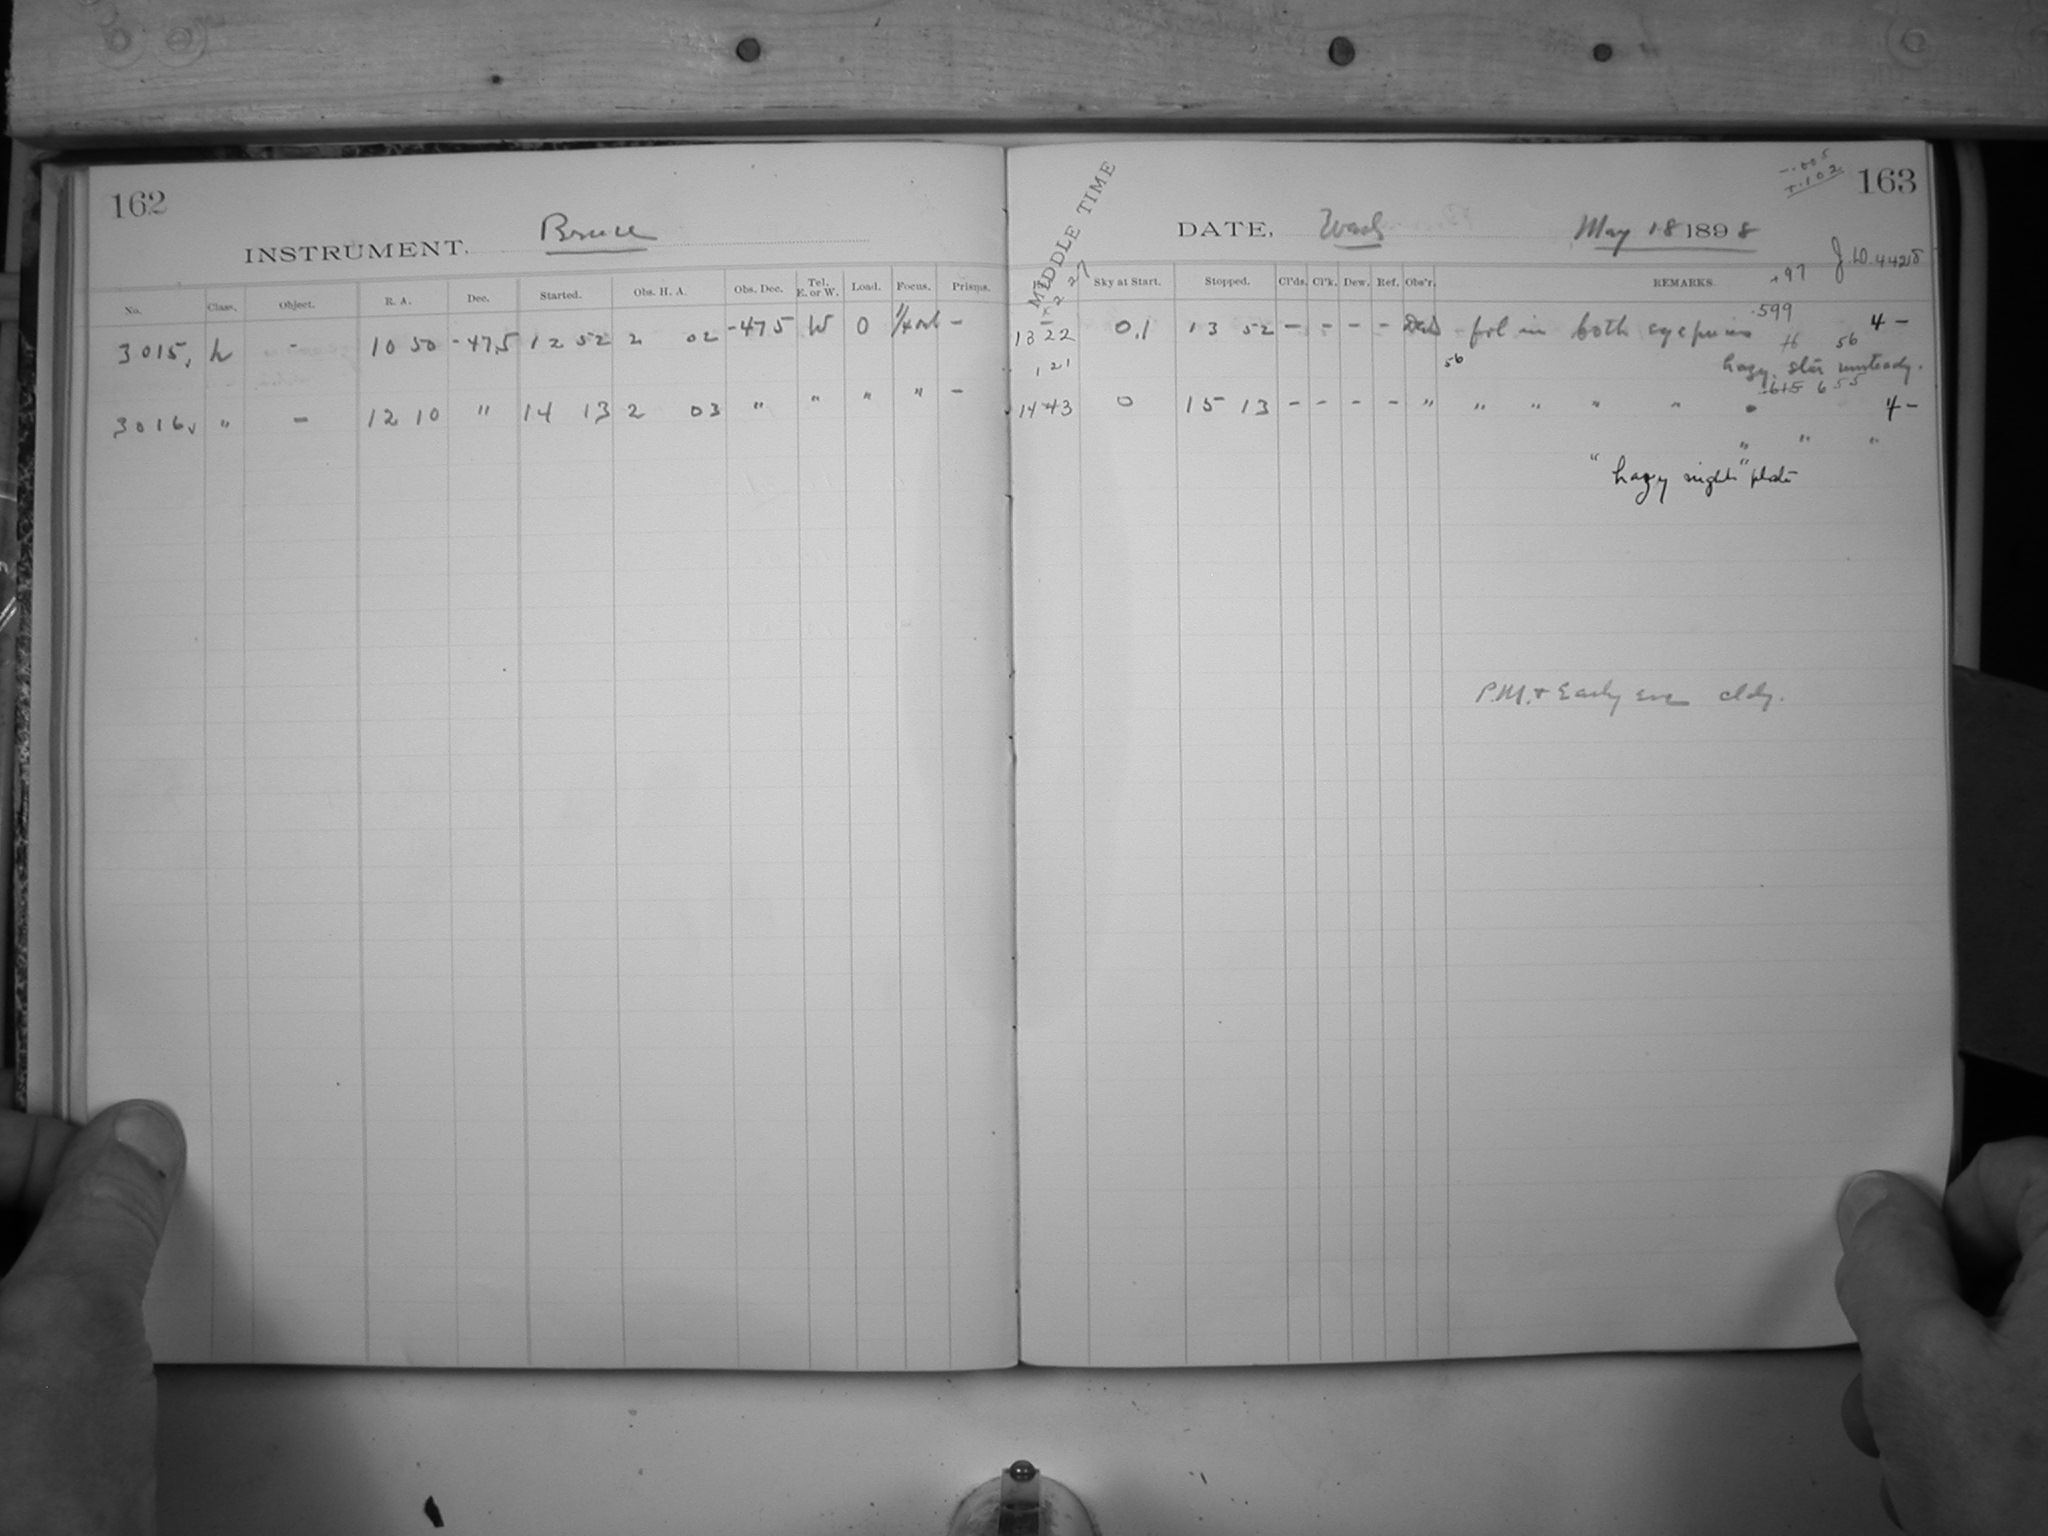 162
INSTRUMENT. Bruce
No. Class. Object. R. A. Dec. Started. Obs. H. A. Obs. Dec. Tel. E. or W. Load. Focus. Prisms.
3015, L - 10 50 -47.5 12 52 2 02 -47 5 W 0 -
3016, " - 12 10 " 14 13 2 03 " " " " -
-.005
+.102
163
MIDDLE TIME
DATE, Wed May 18 1898
J.D. 4428
+97
Sky at Start. Stopped. Cl'ds. Cl'k. Dew. Ref. Obs'r. REMARKS.
.599
13 22 0.1 13 52 - - - - fol in both eyepieces 4 -
56
56 hazy. star unsteady.
1 21
.615 655
14 43 0 15 13 - - - - " " " " " 4 -
" " "
"hazy night" plate
P.M. + Early eve cldy.